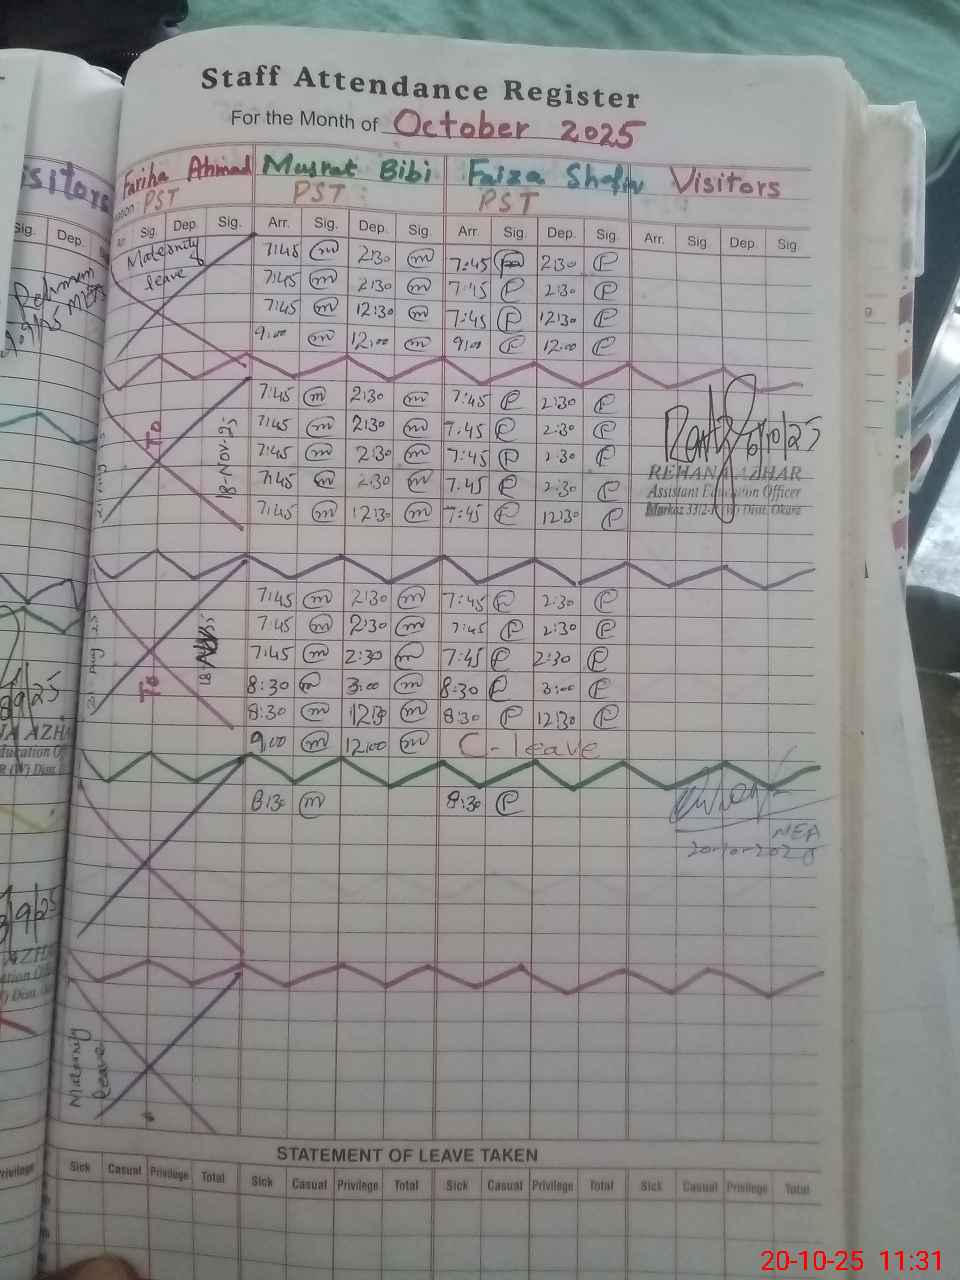 Staff Attendance Register
For the Month of October 2025
Fariha Ahmad Musrat Bibi Faiza Shafiv Visitors
PST PST PST
Sig. Dep. Sig. Dep. Sig. Arr. Sig. Dep. Sig. Arr. Sig. Dep. Sig. Arr. Sig. Dep. Sig.
Maternity leave
7:45 m 2:30 m 7:45 2:30 P
7:45 m 2:30 m 7:45 P 2:30 P
7:45 m 12:30 m 7:45 P 12:30 P
9:00 m 12:00 m 9:00 P 12:00 P
To 18-Nov-25
7:45 m 2:30 m 7:45 P 2:30 P
7:45 m 2:30 m 7:45 P 2:30 P
7:45 m 2:30 m 7:45 P 2:30 P
7:45 m 2:30 m 7:45 P 2:30 P
7:45 m 12:30 m 7:45 P 12:30 P
REHANA AZHAR
Assistant Education Officer
Markaz 33/2-R (W) Distt. Okara
To
7:45 m 2:30 m 7:45 P 2:30 P
7:45 m 2:30 m 7:45 P 2:30 P
7:45 m 2:30 m 7:45 P 2:30 P
8:30 m 3:00 m 8:30 P 3:00 P
8:30 m 12:30 m 8:30 P 12:30 P
9:00 m 12:00 m C-leave
8:30 m 8:30 P
MEA
20-10-2025
Maternity leave
STATEMENT OF LEAVE TAKEN
Sick Casual Privilege Total Sick Casual Privilege Total Sick Casual Privilege Total Sick Casual Privilege Total
20-10-25 11:31